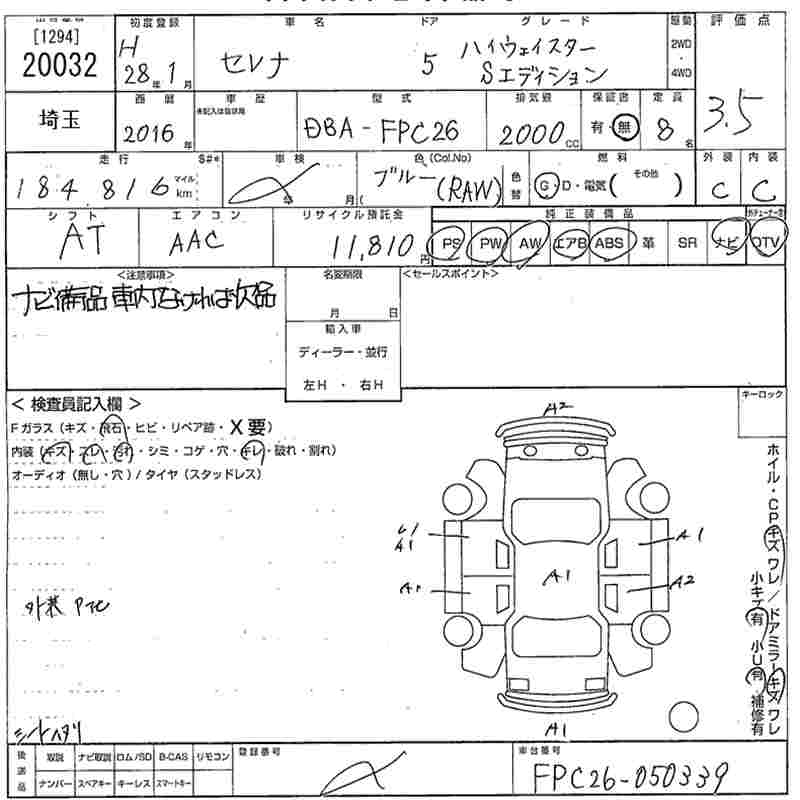 [1294]
20032
初度登録
H
28年 1月
車名
セレナ
ドア
5
グレード
ハイウェイスター
Sエディション
駆動
2WD
・
4WD
評価点
3.5
埼玉
西暦
2016年
車歴
未記入は自家用
型式
DBA-FPC26
排気量
2000cc
保証書
有・無
定員
8名
走行
S#*
184,816
マイル
km
車検
年 月(
色(Col.No)
ブルー(RAW)
色替
燃料
G・D・電気( その他 )
外装
C
内装
C
シフト
AT
エアコン
AAC
リサイクル預託金
11,810円
純正装備品
PS PW AW エアB ABS 革 SR ナビ DTV
<注意事項>
ナビ備品車内なければ欠品
名変期限
月 日
輸入車
ディーラー・並行
左H ・ 右H
<セールスポイント>
< 検査員記入欄 >
Fガラス (キズ・飛石・ヒビ・リペア跡・X要)
内装 (キズ・スレ・汚れ・シミ・コゲ・穴・キレ・破れ・割れ)
オーディオ (無し・穴) / タイヤ (スタッドレス)
外装 Pてc
シートヘタリ
A2
U1
A1
A1
A1
A1
A2
A1
キーロック
ホイル・CPキズ ワレ / ドアミラーキズ ワレ
小キズ有 小U有・補修有
後渡品
取説 ナビ取説 ロム/SD B-CAS リモコン
ナンバー スペアキー キーレス スマートキー
登録番号
車台番号
FPC26-050339